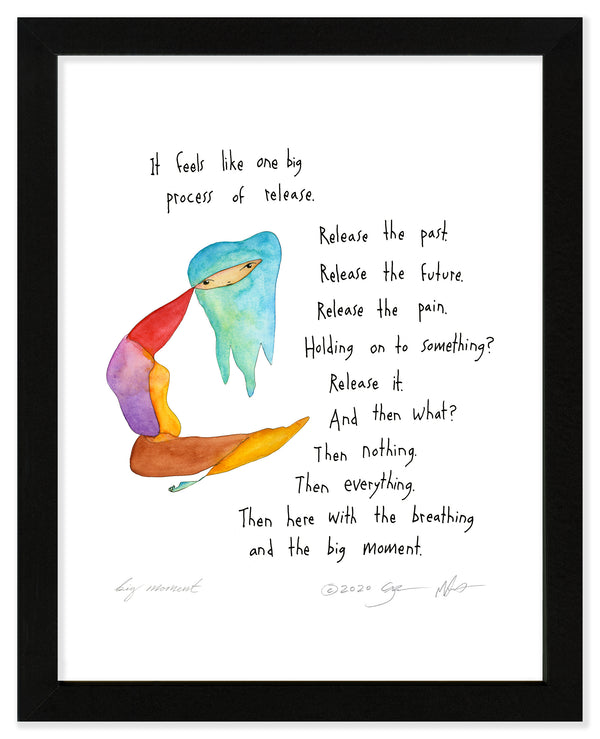 It feels like one big
process of release.
Release the past.
Release the future.
Release the pain.
Holding on to something?
Release it.
And then what?
Then nothing.
Then everything.
Then here with the breathing
and the big moment.
big moment
©2020